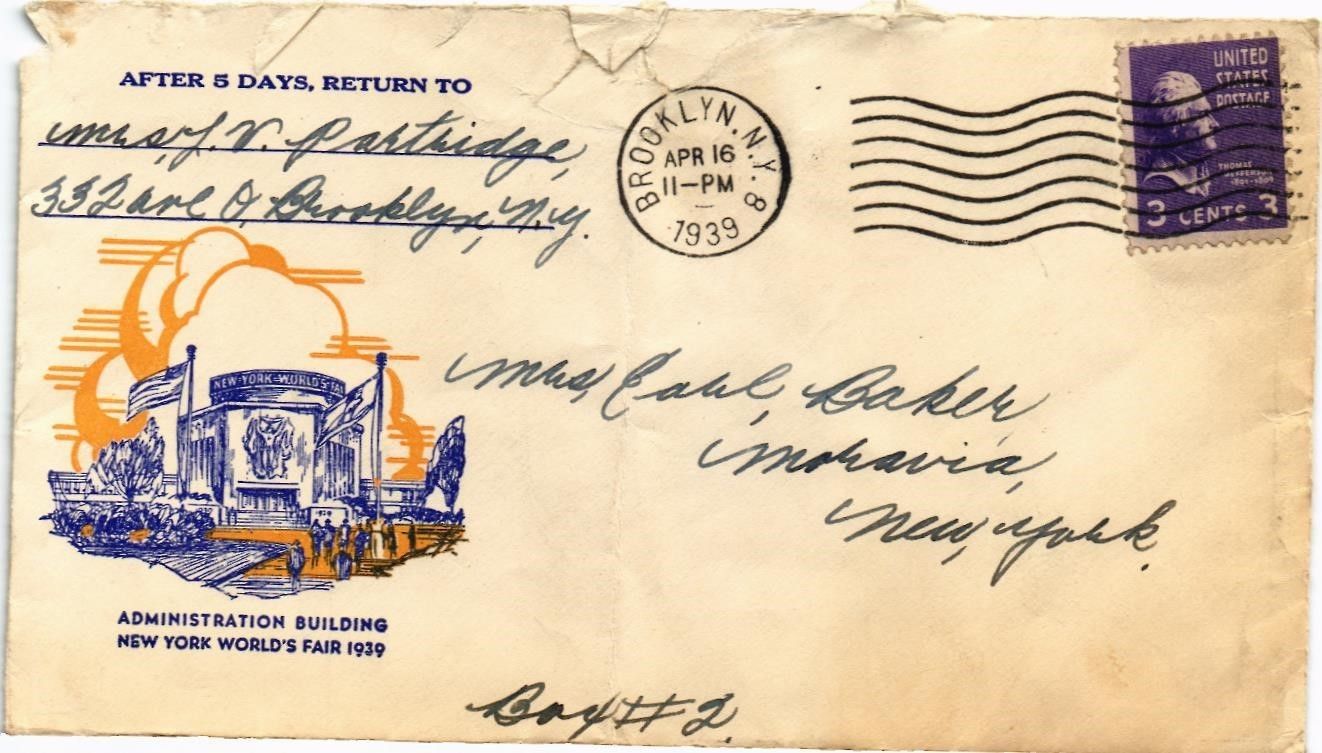 AFTER 5 DAYS, RETURN TO
Mrs, L. V. Partridge,
332 Ave O, Brooklyn, N.Y.
BROOKLYN, N.Y. 8
APR 16
11-PM
1939
UNITED
STATES
POSTAGE
THOMAS
JEFFERSON
1801-1809
3 CENTS 3
NEW-YORK-WORLD'S-FAI
Mrs, Earl, Baker
Moravia,
New, York.
ADMINISTRATION BUILDING
NEW YORK WORLD'S FAIR 1939
Box #2